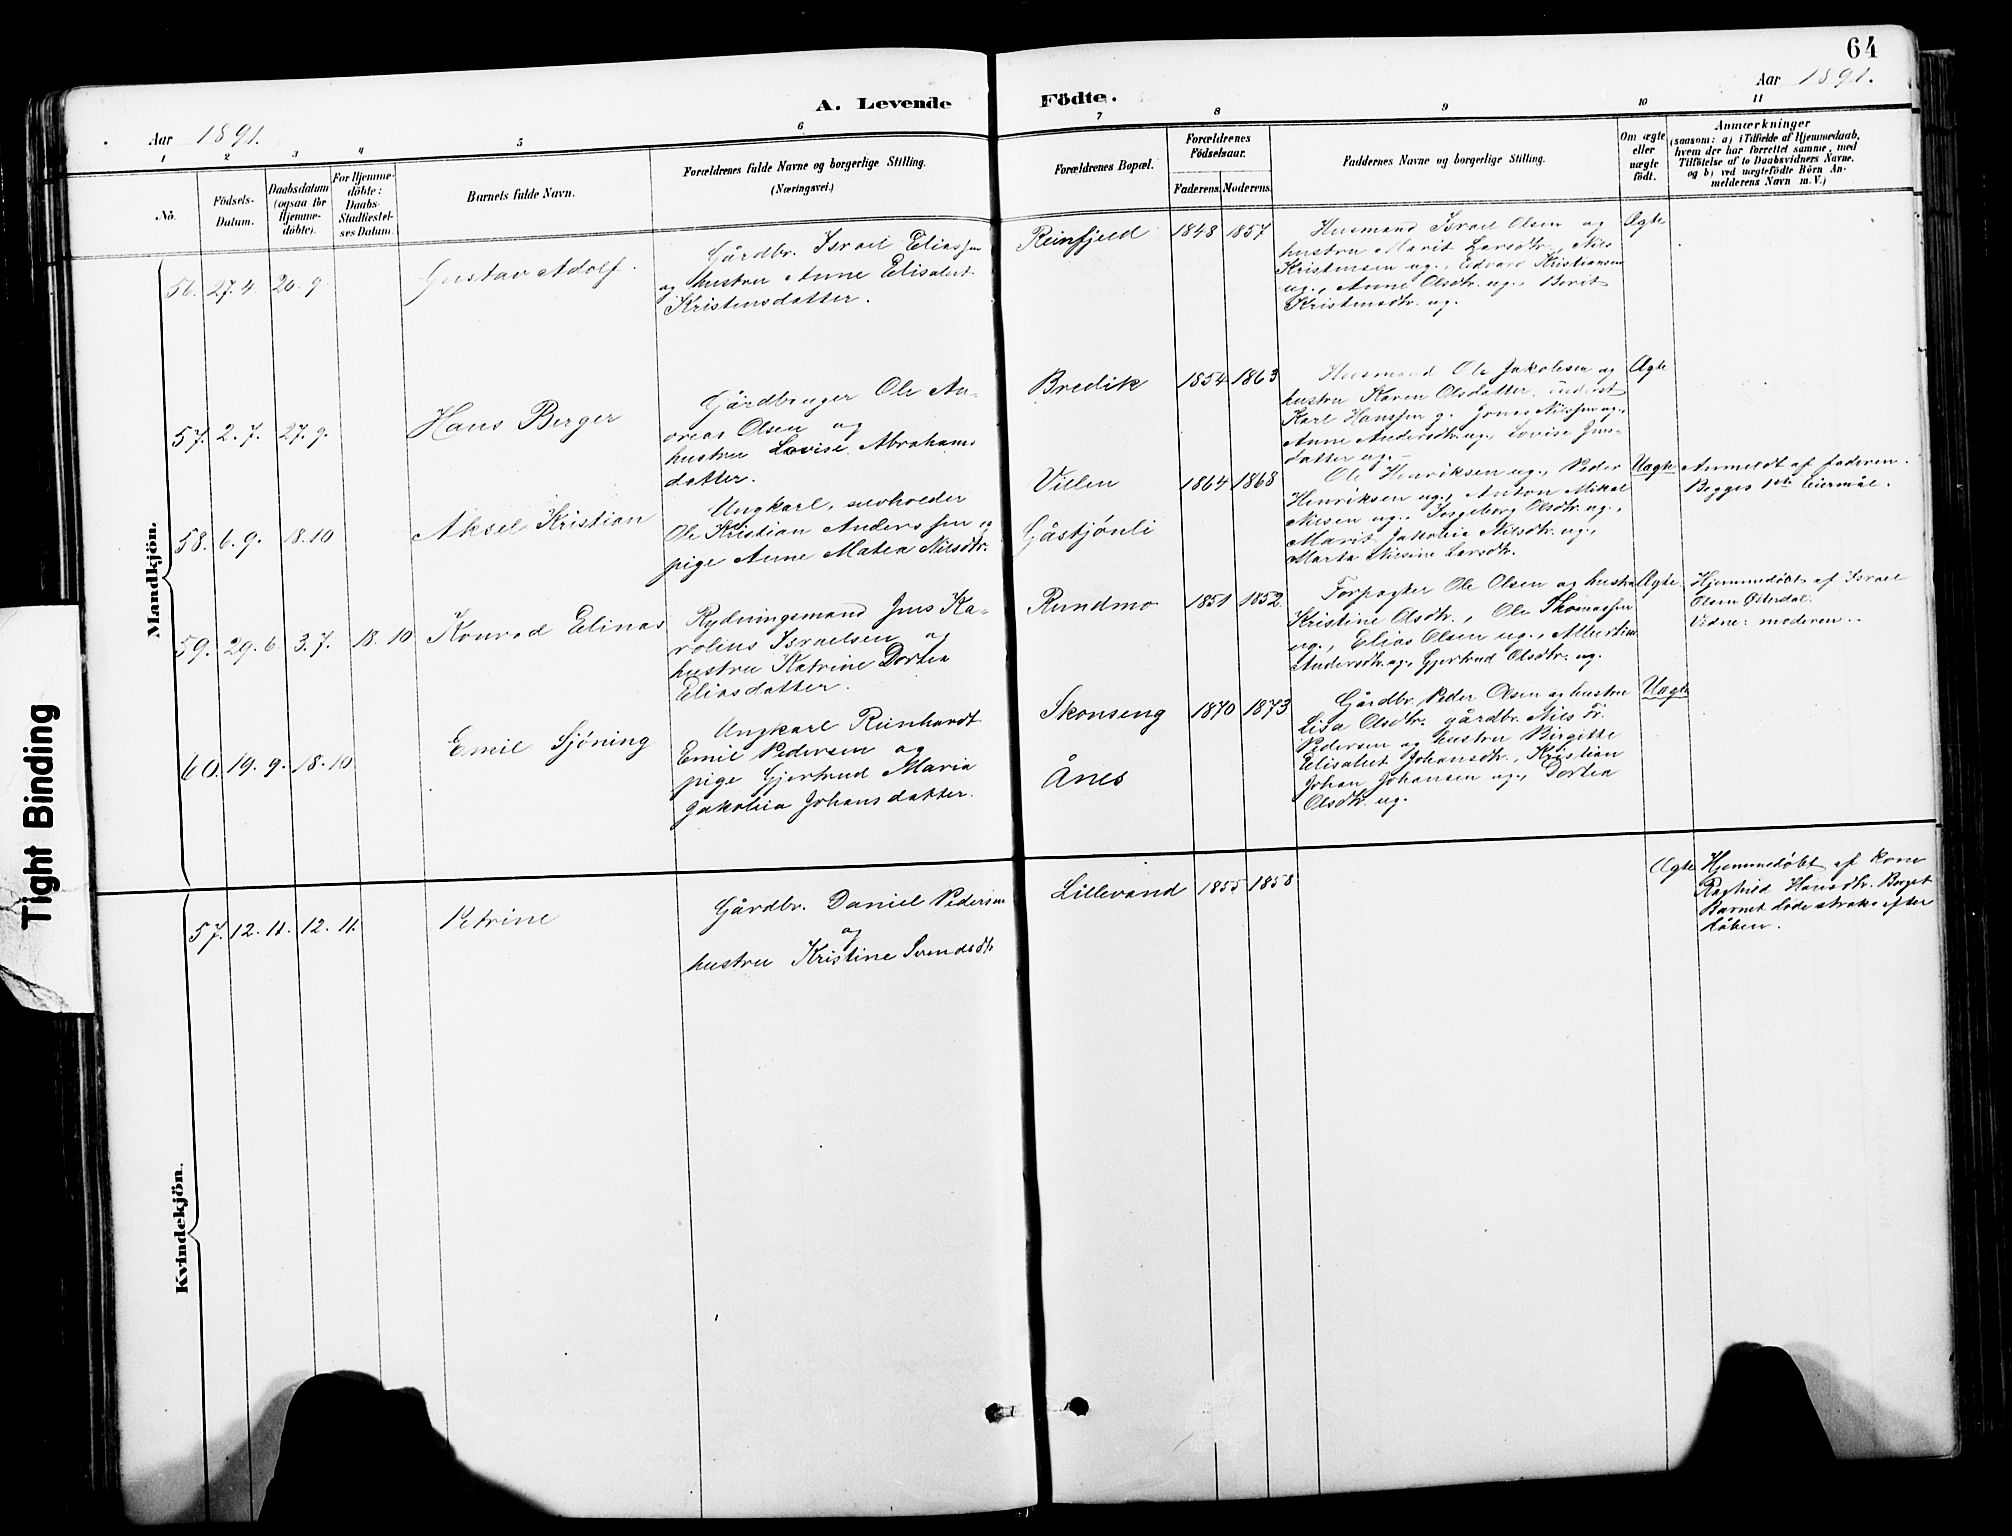 64
A. Levende Födte.
Aar 1891.
Aar 1891.
1 2 3 4 5 6 7 8 9 10 11
No.
Födsels-
Datum.
Daabsdatum
(ogsaa for
Hjemme-
döbte).
For Hjemme-
döbte:
Daabs-
Stadfæstel-
ses Datum.
Barnets fulde Navn.
Forældrenes fulde Navne og borgerlige Stilling.
(Næringsvei.)
Forældrenes Bopæl.
Forældrenes
Födselsaar.
Faderens. Moderens.
Faddernes Navne og borgerlige Stilling.
Om ægte
eller
uægte
födt.
Anmærkninger
(saasom: a) i Tilfælde af Hjemmedaab,
hvem der har forrettet samme, med
Tilföielse af to Daabsvidners Navne,
og b) ved uægtefödte Börn An-
melderens Navn m. V.)
Mandkjön.
56. 27.4. 20.9
Gustav Adolf.
Gårdbr. Israel Eliassen
og hustru Anne Elisabet
Kristensdatter.
Reinfjeld
1848 1857
Husmand Israel Olsen og
hustru Marit Larsdtr., Nils
Kristensen ug., Edvard Kristiansen
ug., Anne Olsdtr. ug., Berit
Kristensdtr. ug.
Ægte
57. 2.7. 27.9.
Hans Berger
Gårdbruger Ole An-
dreas Olsen og
hustru Lovise Abrahams
datter.
Bredik
1854 1863
Husmand Ole Jakobsen og
hustru Karen Olsdatter, inderst
Karl Hanssen g. Jonas Nilssen ug.,
Anne Andersdtr. ug., Lovise Jens-
datter ug.
Ægte
58. 6.9. 18.10
Aksel Kristian
Ungkarl, selvholder
Ole Kristian Anderssen og
pige Anne Matea Nilsdtr.
Villen
Gåstjønli
1864 1868
Ole Henriksen ug., Peder
Henriksen ug., Anton Mikal
Nilsen ug., Ingeborg Olsdtr. ug.,
Marit Jakobia Nilsdtr. ug.,
Marta Nilsine Larsdtr.
Uægte
Anmeldt af faderen.
Begges 1ste leiermål.
59. 29.6. 3.7. 18.10
Konrad Elinas
Rydningsmand Jens Ka-
rolius Israelsen og
hustru Katrine Dortea
Eliasdatter.
Rundmo
1851 1852
Forpagter Ole Olsen og hustru
Kristine Olsdtr., Ole Thomassen
ug., Elias Olsen ug., Albertine
Andersdtr. ug., Gjertrud Olsdtr. ug.
Ægte.
Hjemmedøbt af Israel
Olsen Østerdal.
Vidne: moderen.
60. 19.9. 18.10
Emil Sjöning
Ungkarl Reinhardt
Emil Pedersen og
pige Gjertrud Maria
Jakobia Johansdatter.
Skonseng
Ånes
1870 1873
Gårdbr. Peder Olsen og hustru
Lisa Olsdtr. gårdbr. Nils Fr.
Pedersen og hustru Birgitte
Elisabet Johansdtr., Kristian
Johan Johansen ug., Dortea
Olsdtr. ug.
Uægte
Kvindekjön.
57. 12.11. 12.11.
Petrine
Gårdbr. Daniel Pedersen
og
hustru Kristine Svendsdtr.
Lillevand
1855 1858
Ægte
Hjemmedøbt af kone
Raghild Hansdtr. Berget
Barnet døde straks efter
dåben.
Tight Binding